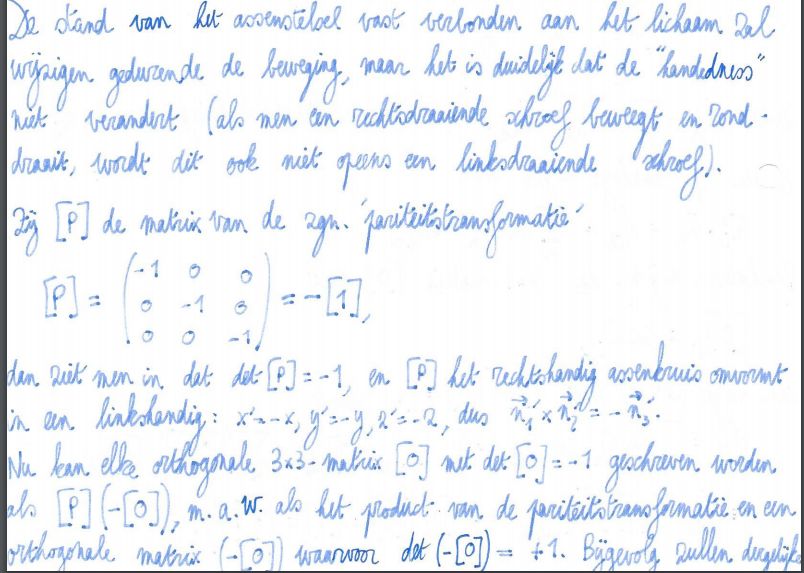 De stand van het assenstelsel vast verbonden aan het lichaam zal
wijzigen gedurende de beweging, maar het is duidelijk dat de "handedness"
niet verandert (als men een rechtsdraaiende schroef beweegt en rond-
draait, wordt dit ook niet opeens een linksdraaiende schroef).
Zij [P] de matrix van de zgn. 'pariteitstransformatie'
[P] = ( -1 0 0
0 -1 0
0 0 -1 ) = -[1],
dan ziet men in dat det [P] = -1, en [P] het rechtshandig assenkruis omvormt
in een linkshandig: x' = -x, y' = -y, z' = -z, dus n⃗₁' × n⃗₂' = - n⃗₃'.
Nu kan elke orthogonale 3×3-matrix [O] met det [O] = -1 geschreven worden
als [P] (-[O]), m.a.w. als het product van de pariteitstransformatie en een
orthogonale matrix (-[O]) waarvoor det (-[O]) = +1. Bijgevolg zullen dergelijke